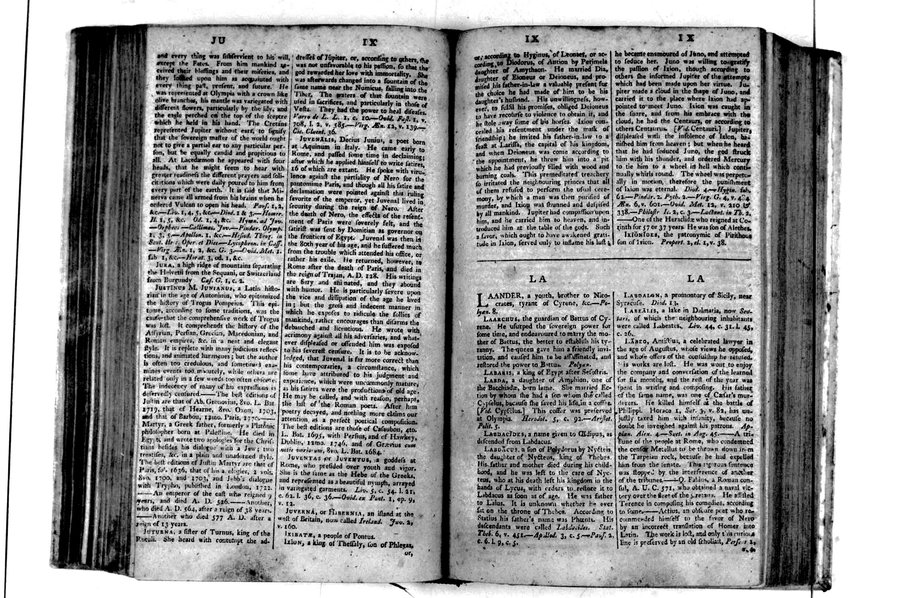 JU
IX
and every thing was subservient to his will,
except the Fates. From him mankind re-
ceived their blessings and their miseries, and
they looked upon him as acquainted with
every thing past, present, and future. He
was represented at Olympia with a crown like
olive branches, his mantle was variegated with
different flowers, particularly by the lily, and
the eagle perched on the top of the sceptre
which he held in his hand. The Cretans
represented Jupiter without ears, to signify
that the sovereign master of the world ought
not to give a partial ear to any particular per-
son, but be equally candid and propitious to
all. At Lacedæmon he appeared with four
heads, that he might seem to hear with
greater readiness the different prayers and soli-
citations which were daily poured to him from
every part of the earth. It is said that Mi-
nerva came all armed from his brains when he
ordered Vulcan to open his head.
JURA, a high ridge of mountains separating
the Helvetii from the Sequani, or Switzerland
from Burgundy Cæs. G. 1, c. 2.
JUSTINUS M. JUNIANUS, a Latin histo-
rian in the age of Antoninus, who epitomized
the history of Trogus Pompeius. This epi-
tome, according to some traditions, was the
cause that the comprehensive work of Trogus
was lost. It comprehends the history of the
Assyrian, Persian, Grecian, Macedonian, and
Roman empires, &c. in a neat and elegant
style. It is replete with many judicious reflec-
tions, and animated harangues; but the author
is often too credulous, and sometimes exa-
mines events too minutely, while others are
related only in a few words too often obscure.
The indecency of many of his expressions is
deservedly censured.—The best editions of
Justin are that of Ab. Gronovius, 8vo. L. Bat.
1719, that of Hearne, 8vo. Oxon. 1703,
and that of Barbou, 12mo. Paris, 1770.——
Martyr, a Greek father, formerly a Platonic
philosopher born at Palestine. He died in
Egypt, and wrote two apologies for the Chris-
tians besides his dialogue with a Jew; two
treatises, &c. in a plain and unadorned style.
The best editions of Justin Martyr are that of
Paris, fol. 1636, that of his apologies, 2 vols.
8vo. 1700, and 1703, and Jebb's dialogue
with Trypho, published in London, 1722.
——An emperor of the east who reigned 9
years, and died A. D. 526.——Another,
who died A. D. 564, after a reign of 38 years.
——Another who died 577 A. D. after a
reign of 13 years.
JUTURNA, a sister of Turnus, king of the
Rutuli. She heard with contempt the ad-
dresses of Jupiter, or, according to others, she
was not unfavorable to his passion, so that the
god rewarded her love with immortality. She
was afterwards changed into a fountain of the
same name near the Numicus, falling into the
Tiber. The waters of that fountain were
used in sacrifices, and particularly in those of
Vesta. They had the power to heal diseases.
Varro de L. L. 1, c. 10.—Ovid. Fast. 1, v.
708, l. 2, v. 585.—Virg. Æn. 12, v. 139.—
Cic. Cluent. 36.
JUVENALIS, Decius Junius, a poet born
at Aquinum in Italy. He came early to
Rome, and passed some time in declaiming;
after which he applied himself to write satires,
16 of which are extant. He spoke with viru-
lence against the partiality of Nero for the
pantomime Paris, and though all his satire and
declamation were pointed against this ruling
favorite of the emperor, yet Juvenal lived in
security during the reign of Nero. After
the death of Nero, the effects of the resent-
ment of Paris were severely felt, and the
satirist was sent by Domitian as governor on
the frontiers of Egypt. Juvenal was then in
the 80th year of his age, and he suffered much
from the trouble which attended his office, or
rather his exile. He returned, however, to
Rome after the death of Paris, and died in
the reign of Trajan, A. D. 128. His writings
are fiery and animated, and they abound
with humor. He is particularly severe upon
the vice and dissipation of the age he lived
in; but the gross and indecent manner in
which he exposes to ridicule the follies of
mankind, rather encourages than disarms the
debauched and licentious. He wrote with
acrimony against all his adversaries, and what-
ever displeased or offended him was exposed
to his severest censure. It is to be acknow-
ledged, that Juvenal is far more correct than
his contemporaries, a circumstance, which
some have attributed to his judgment and
experience, which were uncommonly mature,
as his satires were the productions of old age.
He may be called, and with reason, perhaps,
the last of the Roman poets. After him
poetry decayed, and nothing more claims our
attention as a perfect poetical composition.
The best editions are those of Casaubon, 4to.
L. Bat. 1695, with Persius, and of Hawkey,
Dublin, 12mo. 1746, and of Grævius cum
notis variorum, 8vo. L. Bat. 1684.
JUVENTAS or JUVENTUS, a goddess at
Rome, who presided over youth and vigor.
She is the same as the Hebe of the Greeks,
and represented as a beautiful nymph, arrayed
in variegated garments. Liv. 5, c. 54. l. 21,
c. 62. l. 36, c. 36.—Ovid. ex Pont. 1, ep. 9,
v. 12.
JUVERNA, or HIBERNIA, an island at the
west of Britain, now called Ireland. Juv. 2,
v. 160.
IXIBATÆ, a people of Pontus.
IXION, a king of Thessaly, son of Phlegas,
or,
IX
IX
or, according to Hyginus, of Leontes, or ac-
cording to Diodorus, of Antion by Perimela
daughter of Amythaon. He married Dia,
daughter of Eioneus or Deioneus, and pro-
mised his father-in-law a valuable present for
the choice he had made of him to be his
daughter's husband. His unwillingness, how-
ever, to fulfil his promises, obliged Deioneus
to have recourse to violence to obtain it, and
he stole away some of his horses. Ixion con-
cealed his resentment under the mask of
friendship; he invited his father-in-law to a
feast at Larissa, the capital of his kingdom,
and when Deioneus was come according to
the appointment, he threw him into a pit
which he had previously filled with wood and
burning coals. This premeditated treachery
so irritated the neighbouring princes that all
of them refused to perform the usual cere-
mony, by which a man was then purified of
murder, and Ixion was shunned and despised
by all mankind. Jupiter had compassion upon
him, and he carried him to heaven, and in-
troduced him at the table of the gods. Such
a favor, which ought to have awakened grati-
tude in Ixion, served only to inflame his lust;
he became enamoured of Juno, and attempted
to seduce her. Juno was willing to gratify
the passion of Ixion, though according to
others she informed Jupiter of the attempts
which had been made upon her virtue. Ju-
piter made a cloud in the shape of Juno, and
carried it to the place where Ixion had ap-
pointed to meet Juno. Ixion was caught in
the snare, and from his embrace with the
cloud, he had the Centaurs, or according to
others Centaurus. [Vid. Centauri.] Jupiter,
displeased with the insolence of Ixion, ba-
nished him from heaven; but when he heard
that he had seduced Juno, the god struck
him with his thunder, and ordered Mercury
to tie him to a wheel in hell which conti-
nually whirls round. The wheel was perpetu-
ally in motion, therefore the punishment
of Ixion was eternal. Diod. 4.—Hygin. fab.
62.—Pindar. 2. Pyth. 2.—Virg. G. 4, v. 484.
Æn. 6, v. 601.—Ovid. Met. 12, v. 210 &
338.—Philostr. Ic. 2, c. 3.—Lactant. in Th. 2.
——One of the Heraclidæ who reigned at Co-
rinth for 57 or 37 years. He was son of Alethes.
IXIONIDES, the patronymic of Pirithous
son of Ixion. Propert. 2, el. 1, v. 38.
LA
LA
LAANDER, a youth, brother to Nico-
crates, tyrant of Cyrene, &c.—Po-
lyæn. 8.
LAARCHUS, the guardian of Battus of Cy-
rene. He usurped the sovereign power for
some time, and endeavoured to marry the mo-
ther of Battus, the better to establish his ty-
ranny. The queen gave him a friendly invi-
tation, and caused him to be assassinated, and
restored the power to Battus. Polyæn.
LABARIS, a king of Egypt after Sesostris.
LABDA, a daughter of Amphion, one of
the Bacchiadæ, born lame. She married Ee-
tion by whom she had a son whom she called
Cypselus, because she saved his life in a coffer.
[Vid. Cypselus.] This coffer was preserved
at Olympia. Herodot. 5, c. 92.—Aristot.
Polit. 5.
LABDACIDES, a name given to Œdipus, as
descended from Labdacus.
LABDACUS, a son of Polydorus by Nycteis,
the daughter of Nycteus, king of Thebes.
His father and mother died during his child-
hood, and he was left to the care of Nyc-
teus, who at his death left his kingdom in the
hands of Lycus, with orders to restore it to
Labdacus as soon as of age. He was father
to Laius. It is unknown whether he ever
sat on the throne of Thebes. According to
Statius his father's name was Phœnix. His
descendants were called Labdacides. Stat.
Theb. 6, v. 451.—Apollod. 3, c. 5.—Paus. 2.
c. 6. l. 9, c. 5.
LABDALON, a promontory of Sicily, near
Syracuse. Diod. 12.
LABEALIS, a lake in Dalmatia, now Scu-
tari, of which the neighbouring inhabitants
were called Labeates. Liv. 44, c. 31. l. 45,
c. 26.
LABEO, Antistius, a celebrated lawyer in
the age of Augustus, whose views he opposed,
and whose offers of the consulship he refused.
His works are lost. He was wont to enjoy
the company and conversation of the learned
for six months, and the rest of the year was
spent in writing and composing. His father
of the same name, was one of Cæsar's mur-
derers. He killed himself at the battle of
Philippi. Horace 1, Sat. 3, v. 82, has un-
justly taxed him with insanity, because no
doubt he inveighed against his patrons. Ap-
pian. Alex. 4.—Suet. in Aug. 45.——A tri-
bune of the people at Rome, who condemned
the censor Metellus to be thrown down from
the Tarpeian rock, because he had expelled
him from the senate. This rigorous sentence
was stopped by the interference of another
of the tribunes.——Q. Fabius, a Roman con-
sul, A. U. C. 571, who obtained a naval vic-
tory over the fleet of the Cretans. He assisted
Terence in composing his comedies, according
to some.——Actius, an obscure poet who re-
commended himself to the favor of Nero
by an incorrect translation of Homer into
Latin. The work is lost, and only this curious
line is preserved by an old scholiast, Perse. 1,
v. 4.